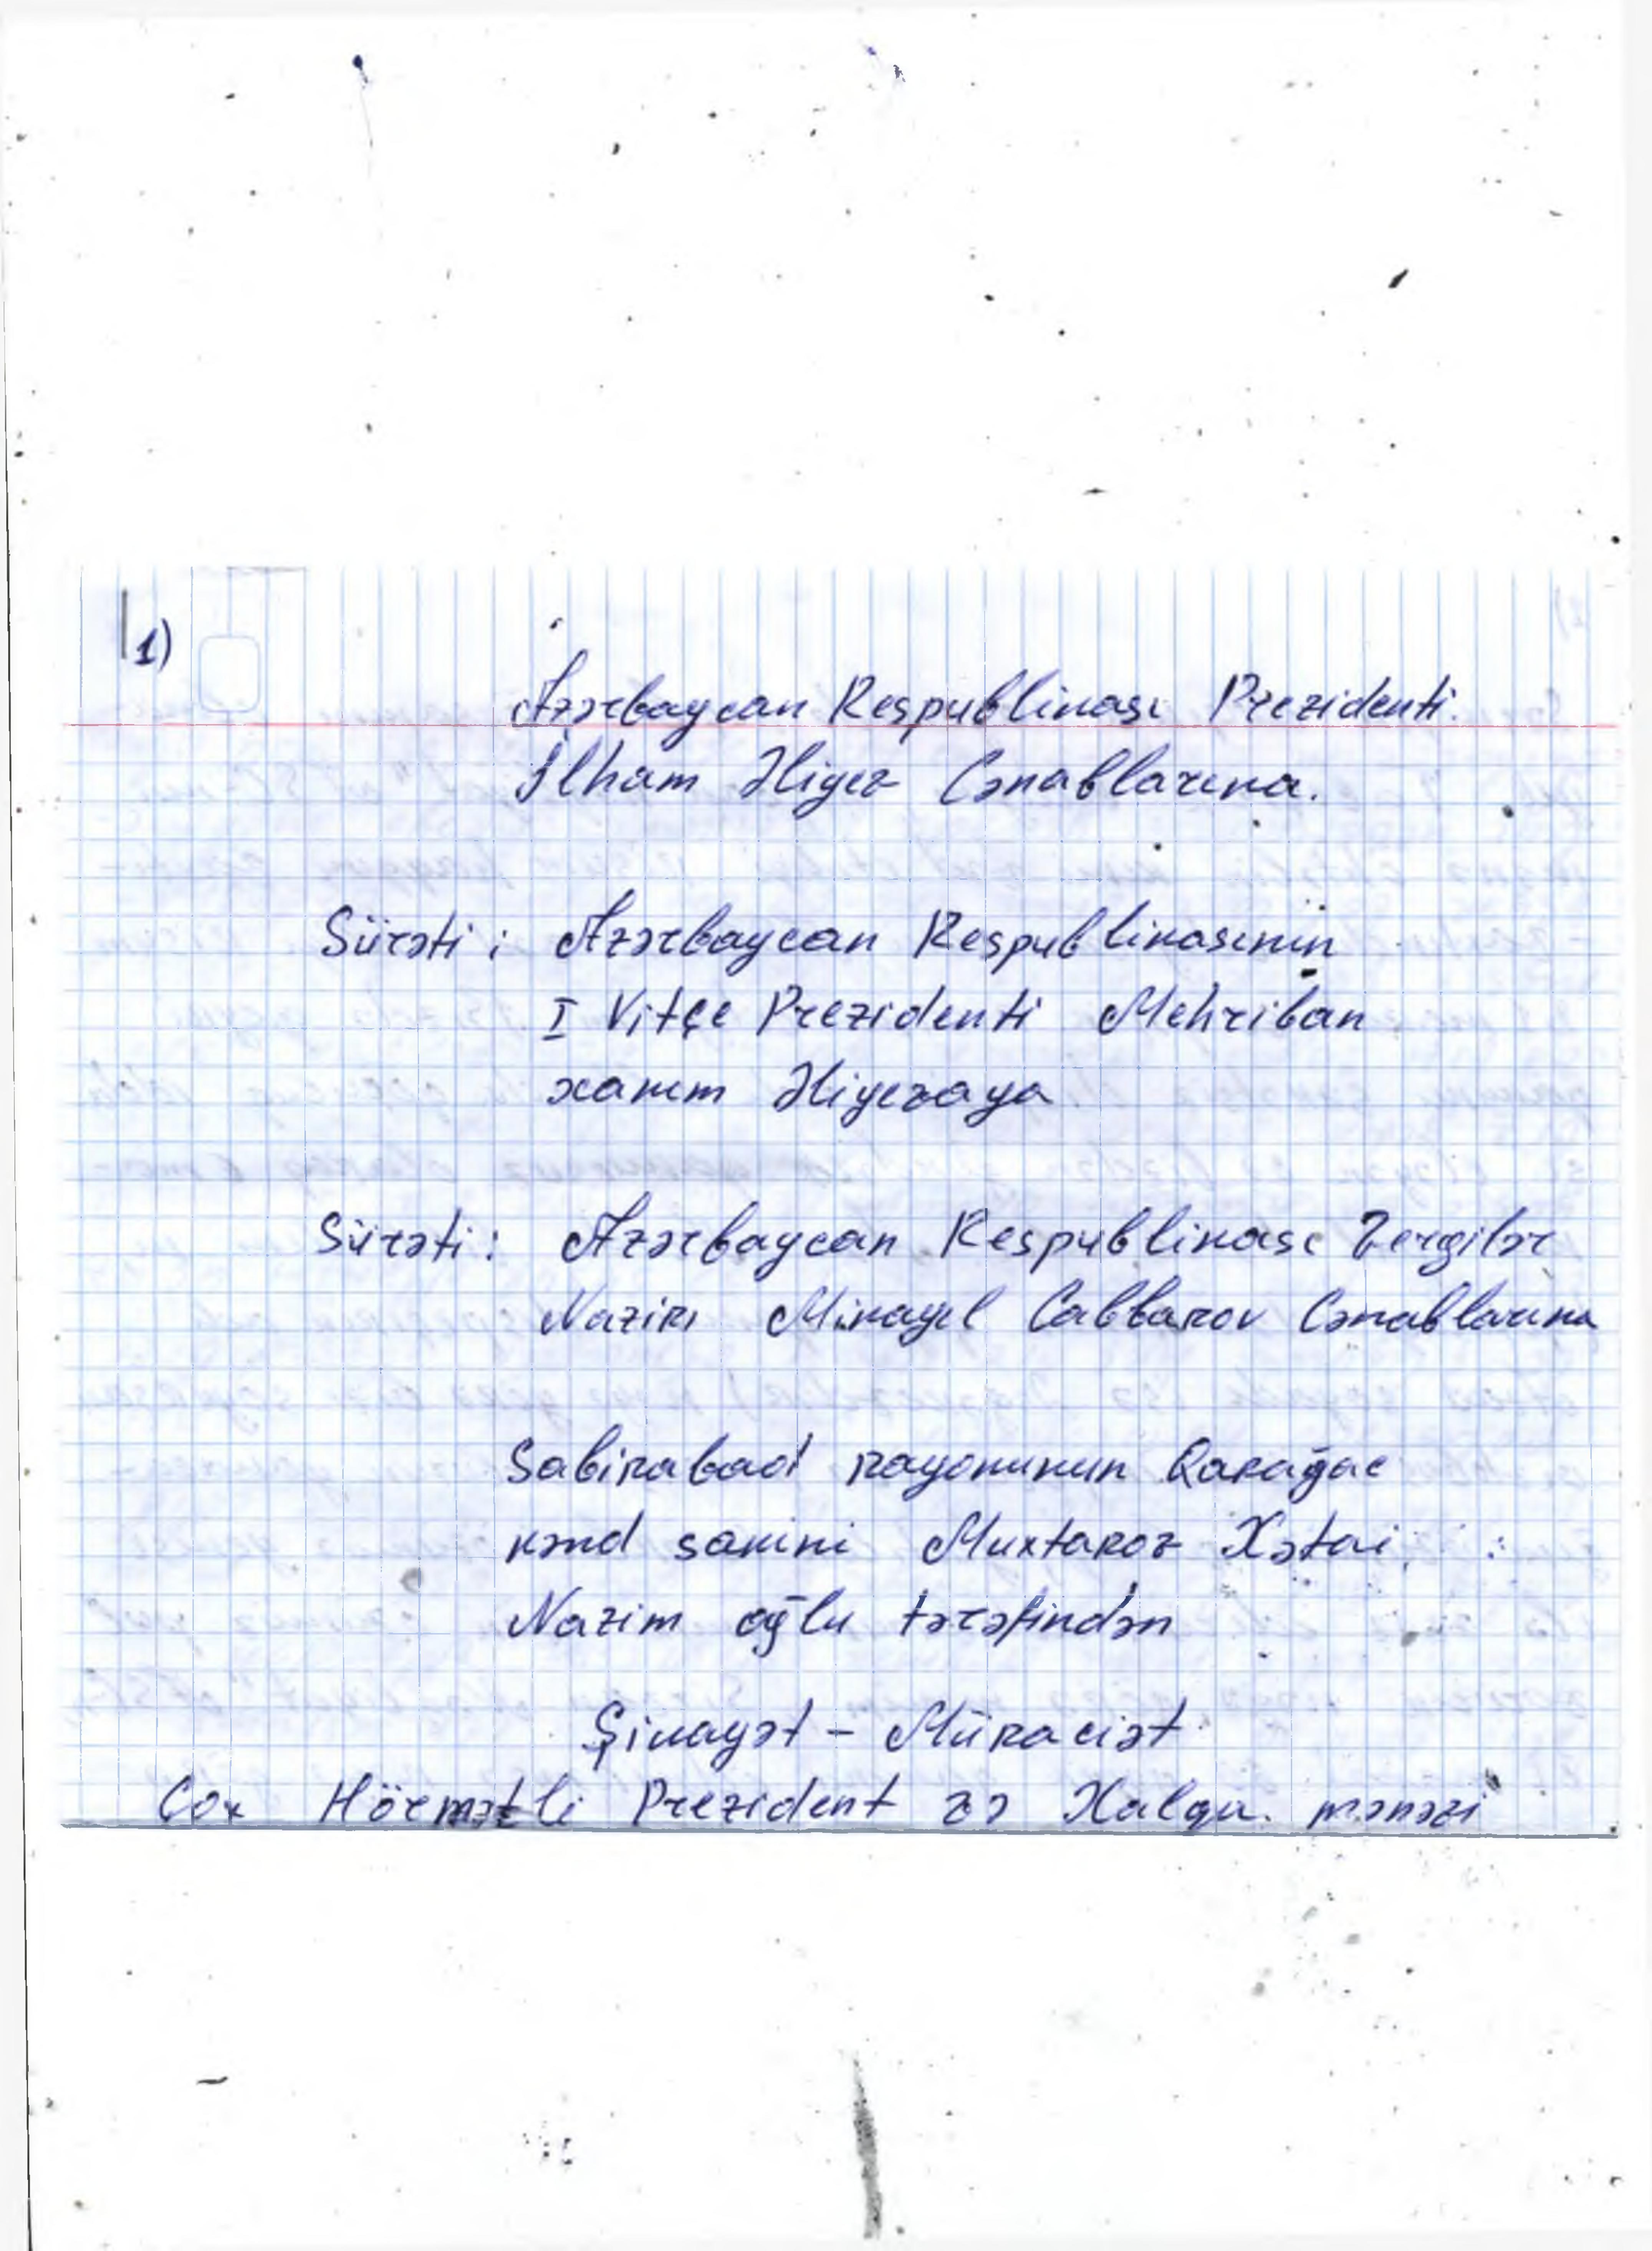 1)
Azərbaycan Respublikası Prezidenti
İlham Əliyev Cənablarına.
Sürəti: Azərbaycan Respublikasının
I Vitçe Prezidenti Mehriban
xanım Əliyevaya
Sürəti: Azərbaycan Respublikası Vergilər
Naziri Mikayıl Cabbarov Cənablarına
Sabirabad rayonunun Qarağac
kənd sakini Muxtarov Xətai
Nazim oğlu tərəfindən
Şikayət - Müraciət
Çox Hörmətli Prezident və Xalqın mənəvi